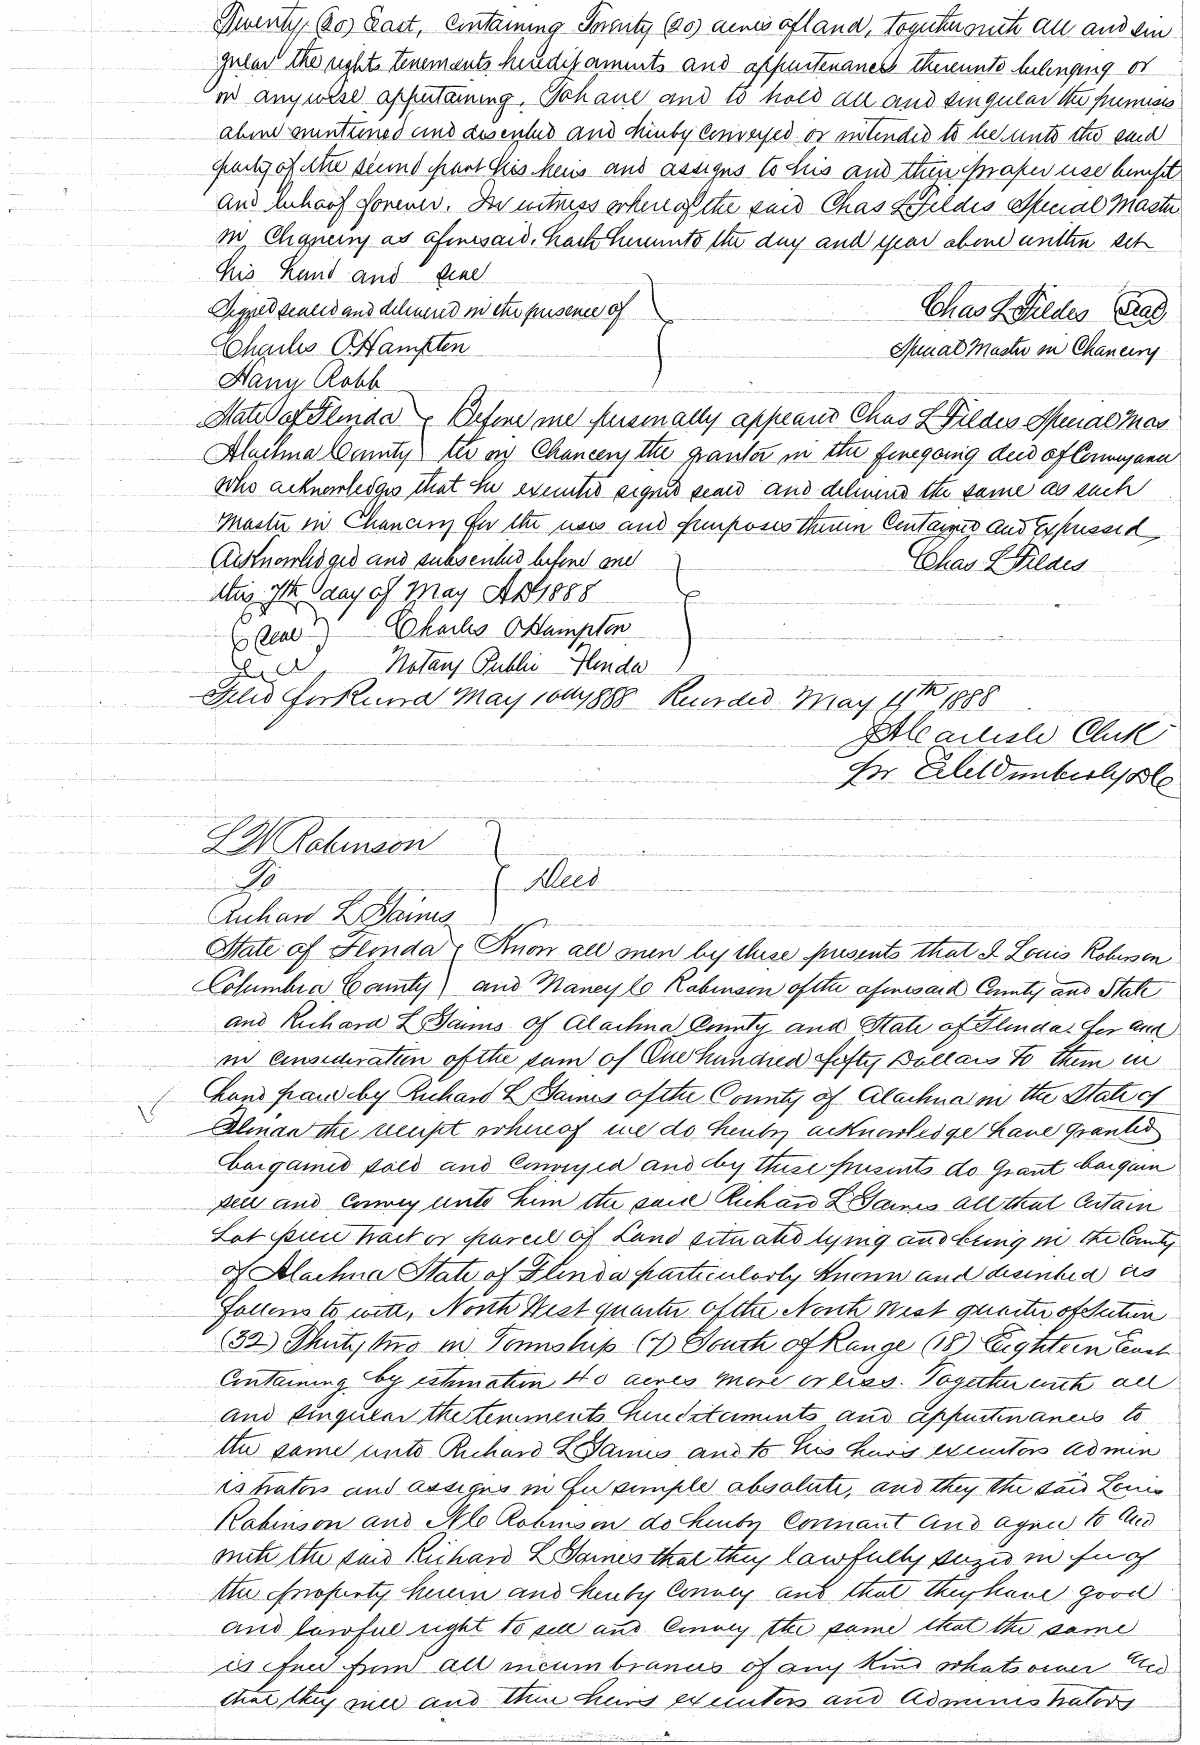 Twenty (20) East, Containing Twenty (20) acres of land, together with all and sin
gular the rights tenements hereditaments and appurtenances thereunto belonging or
in anywise appertaining, To have and to hold all and singular the premises
above mentioned and described and hereby Conveyed or intended to be unto the said
party of the second part his heirs and assigns to his and their proper use benefit
and behoof forever. In witness whereof the said Chas L Fildes Special Master
in Chancery as aforesaid, hath hereunto the day and year above written set
his hand and seal
Signed sealed and delivered in the presence of
Chas L Fildes (Seal)
Charles O Hampton
Special Master in Chancery
Harry Robb
State of Florida } Before me personally appeared Chas L Fildes Special Mas
Alachua County } ter in Chancery the grantor in the foregoing deed of Conveyance
who acknowledges that he executed signed seald and delivered the same as such
Master in Chancery for the uses and purposes therein Contained and Expressed
Acknowledged and subscribed before me
Chas L Fildes
this 7th day of May AD 1888
(Seal) Charles O Hampton
Notary Public Florida
Filed for Record May 10th 1888 Recorded May 11th 1888
Carlisle Clerk
for DC
L W Robinson
To } Deed
Richard L Gaines
State of Florida } Know all men by these presents that I Louis Robinson
Columbia County } and Nancy C Robinson of the aforesaid County and State
and Richard L Gaines of Alachua County and State of Florida for and
in consideration of the sum of One hundred fifty Dollars to them in
hand paid by Richard L Gaines of the County of Alachua in the State of
Florida the receipt whereof we do hereby acknowledge have granted
bargained sold and Conveyed and by these presents do Grant bargain
sell and Convey unto him the said Richard L Gaines all that Certain
Lot piece tract or parcel of Land situated lying and being in the County
of Alachua State of Florida particularly known and described as
follows to with, North West quarter of the North West quarter of Section
(32) Thirty two in Township (7) South of Range (18) Eighteen East
Containing by estimation 40 acres more or less. Together with all
and singular the tenements hereditaments and appurtenances to
the same unto Richard L Gaines and to his heirs executors admin
istrators and assigns in fee simple absolute, and they the said Louis
Robinson and N C Robinson do hereby Covenant and agree to and
with the said Richard L Gaines that they lawfully seized in fee of
the property herein and hereby Convey and that they have good
and lawful right to sell and Convey the same that the same
is free from all incumbrances of any kind whatsoever and
that they will and their heirs executors and Administrators